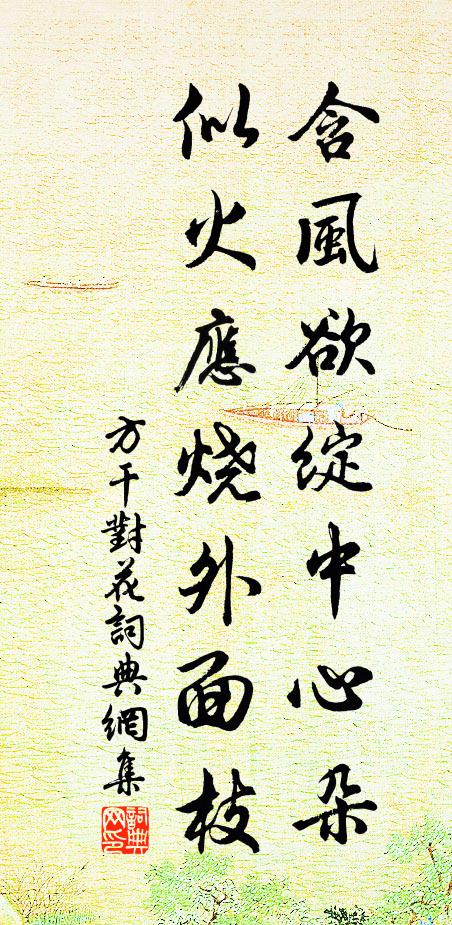 含風欲綻中心朵
似火應燒外面枝
方干對花詞典網集
詞典網印